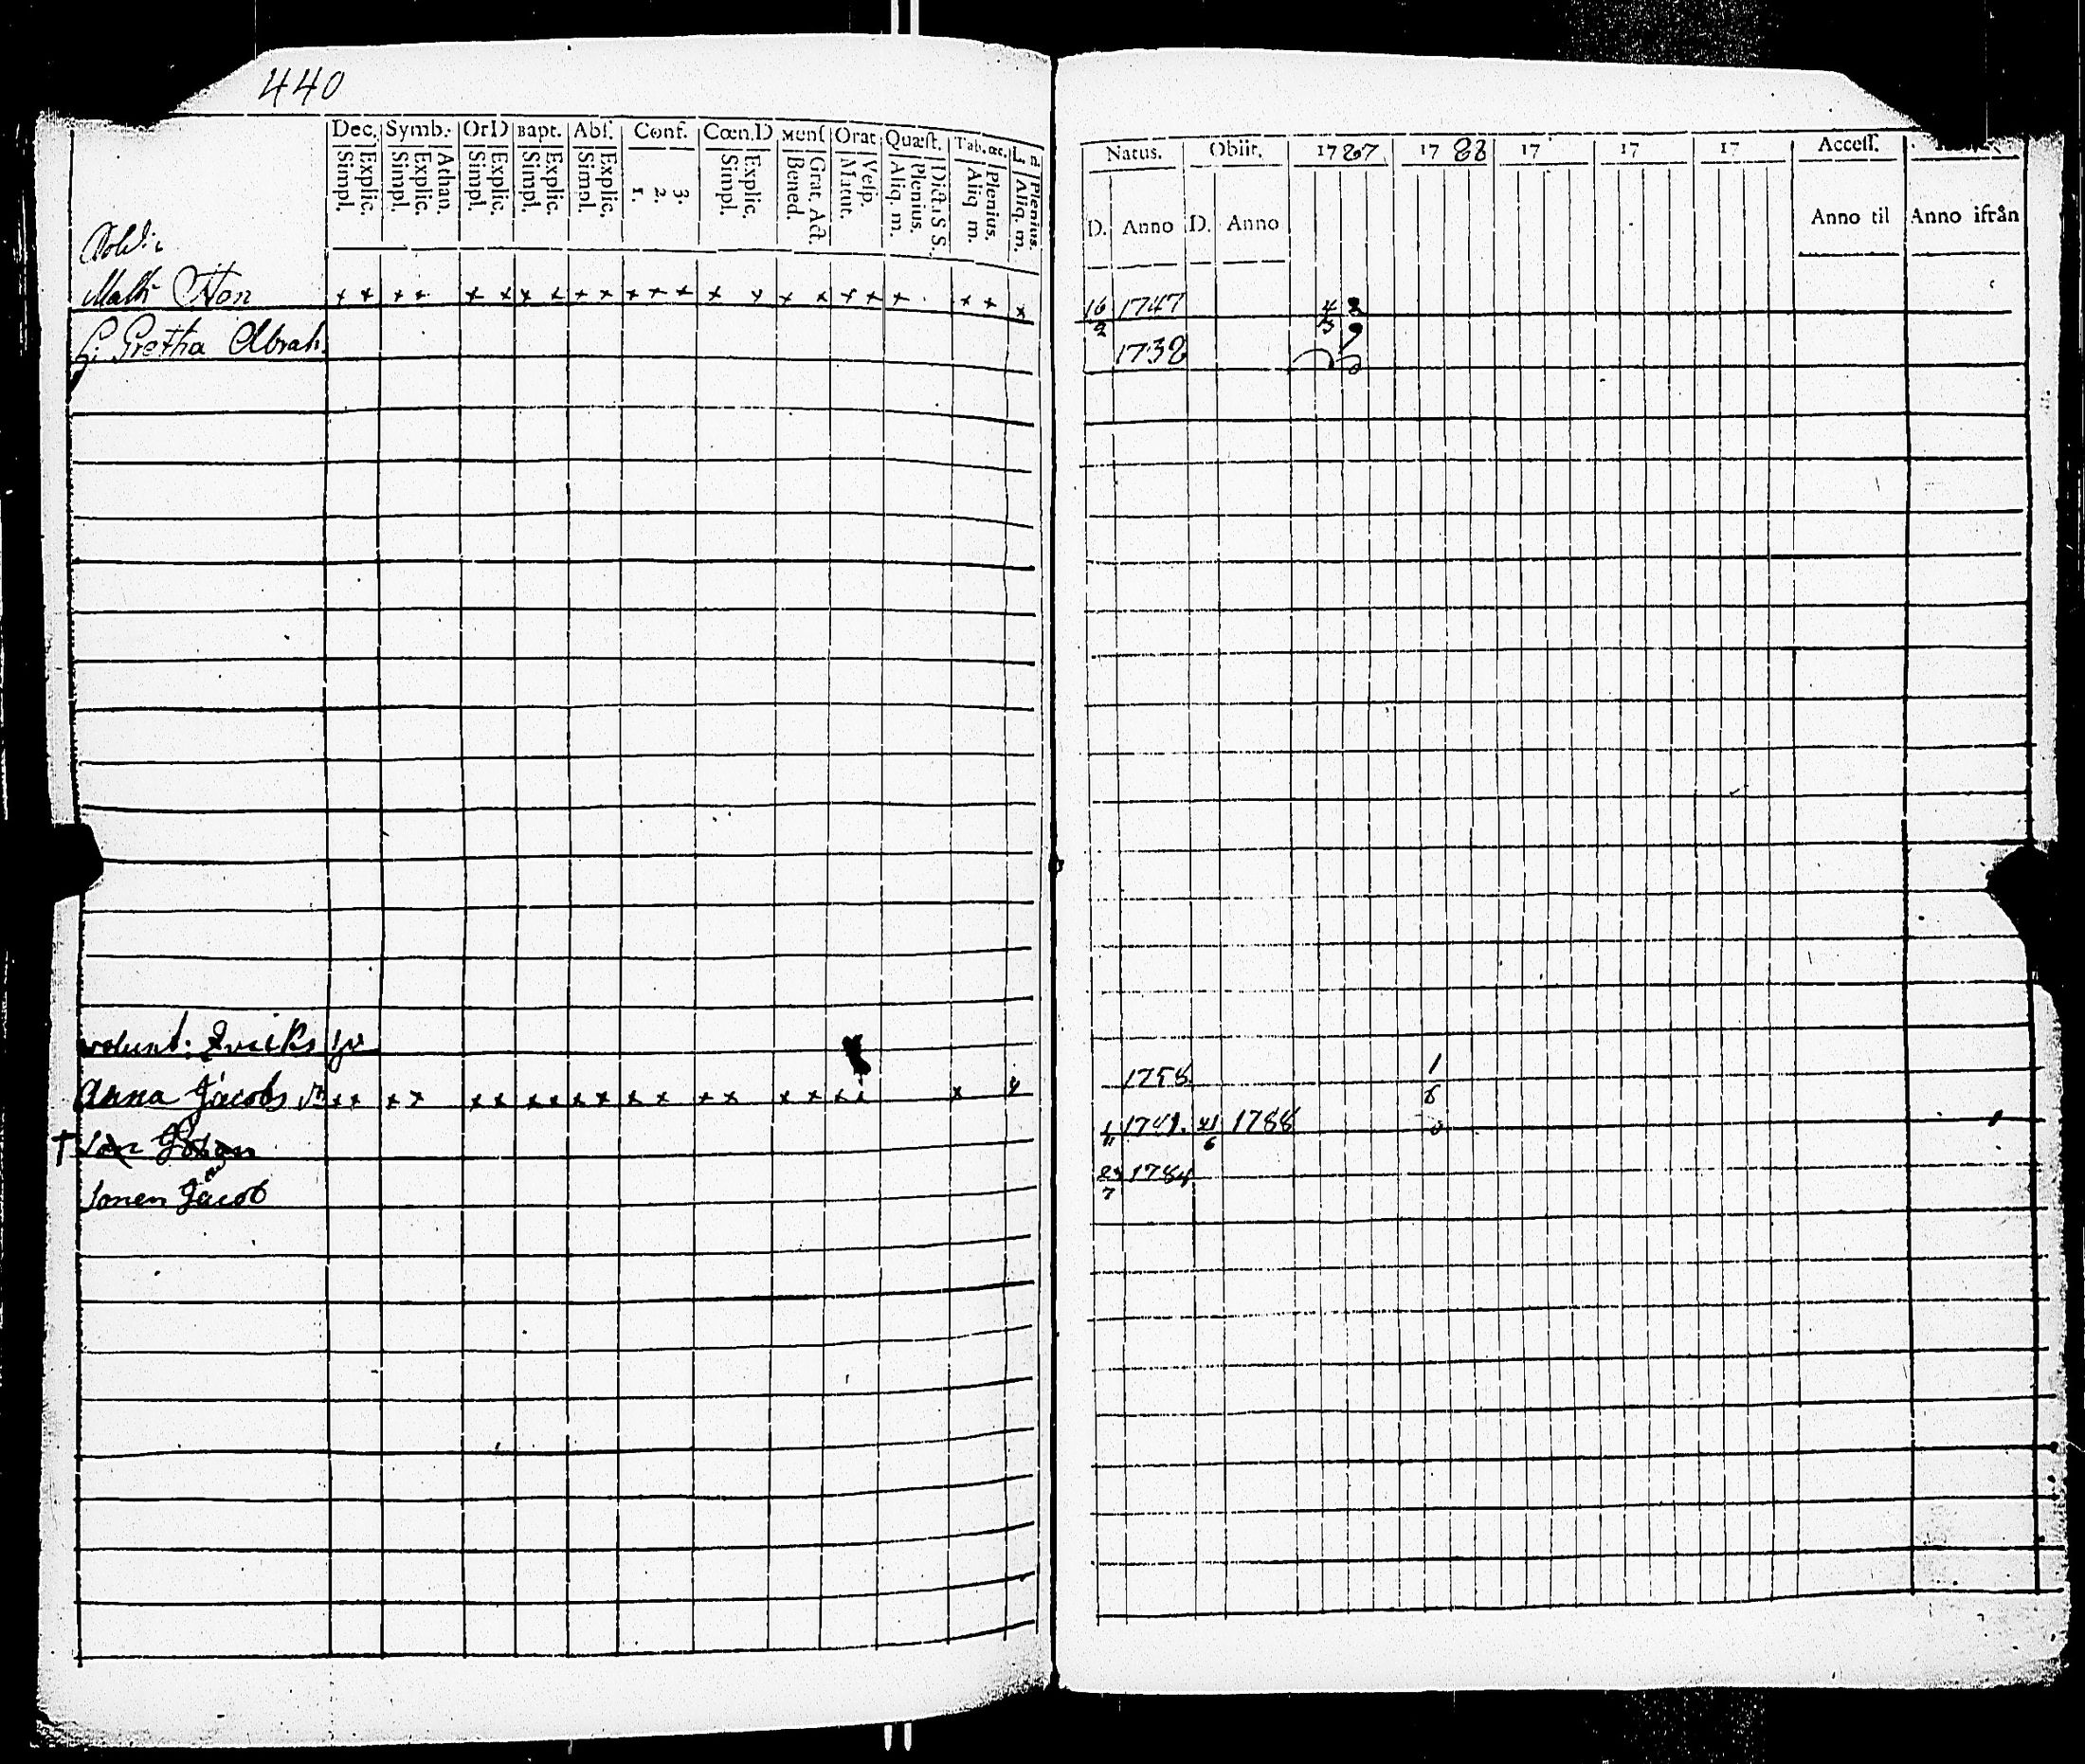 440
Dec. Symb. OrD Bapt. Abſ. Conf. Cœn.D Menſ Orat Quæſt. Tab.œc. L. n.
Simpl. Explic. Simpl. Explic. Athan. Simpl. Explic. Simpl. Explic. Simpl. Explic. 1. 2. 3. Simpl. Explic. Bened. Grat. Act. Matut. Veſp. Aliq. m. Plenius. Dict. S S. Aliq. m. Plenius. Aliq. m. Plenius.
Natus. Obiit. 1787 1788 17 17 17 Acceſſ.
D. Anno D. Anno Anno til Anno ifrån
Sold:
Math x x x x x x x x x x x x x x x x x x x x x x x 16/2 1747
H: Gretha Abrah. 1738
volunt:
Anna Jacobs x x x x x x x x x x x x x x x x x x x x 1758 1/8
† Son Johan 1/11 1781. 21/6 1788
Sonen Jacob 1784